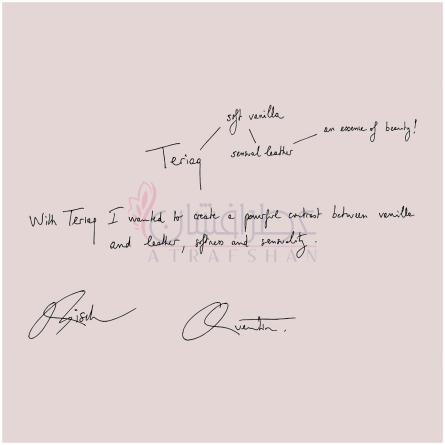 soft vanilla
an essence of beauty!
sensual leather
Teriaq
With Teriaq I wanted to create a powerful contrast between vanilla
and leather, softness and sensuality.
عطرافشان
ATRAFSHAN
Quentin.